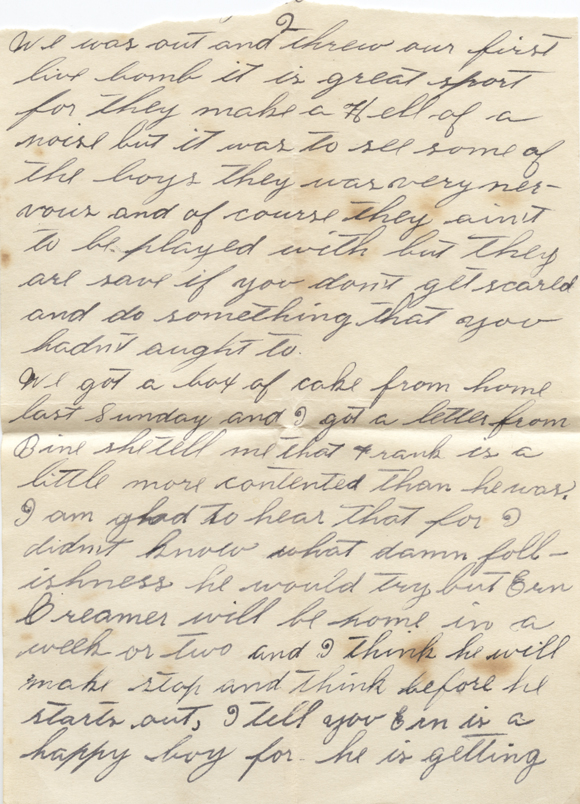 2
We was out and threw our first
live bomb it is great sport
for they make a Hell of a
noise but it was to see some of
the boys they was very ner-
vous and of course they ain't
to be played with but they
are save if you don't get scared
and do something that you
hadn't aught to.
We got a box of cake from home
last Sunday and I got a letter from
Bine she tell me that Frank is a
little more contented than he was.
I am glad to hear that for I
didn't know what damn foll-
ishness he would try but Ern
Creamer will be home in a
week or two and I think he will
make stop and think before he
starts out, I tell you Ern is a
happy boy for he is getting